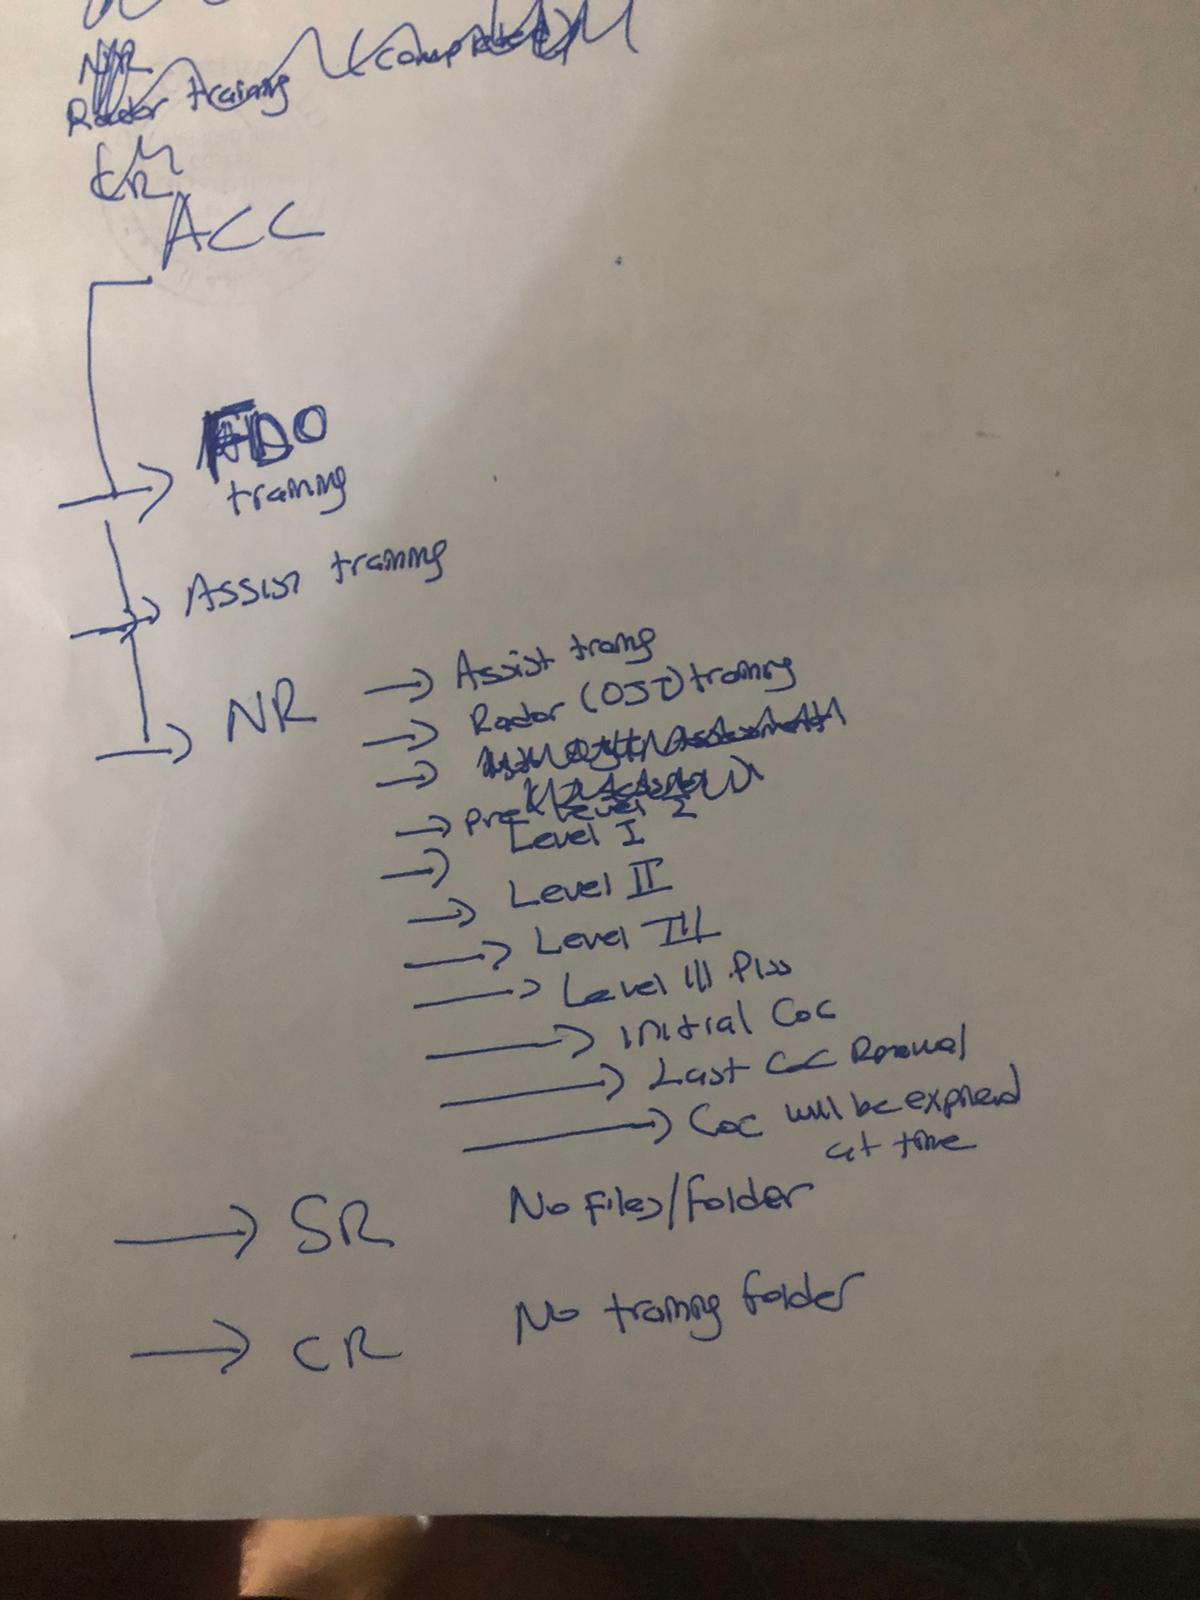 NR
Radar training (completed)
CR
ACC
FDO
training
Assist training
NR
→ Assist traing
→ Radar (OJT) training
→
→ Pre Level 2
→ Level I
→ Level II
→ Level III
→ Level III Plus
→ initial CoC
→ Last CoC Renewal
→ CoC will be expired
at time
→ SR No files/folder
→ CR No training folder